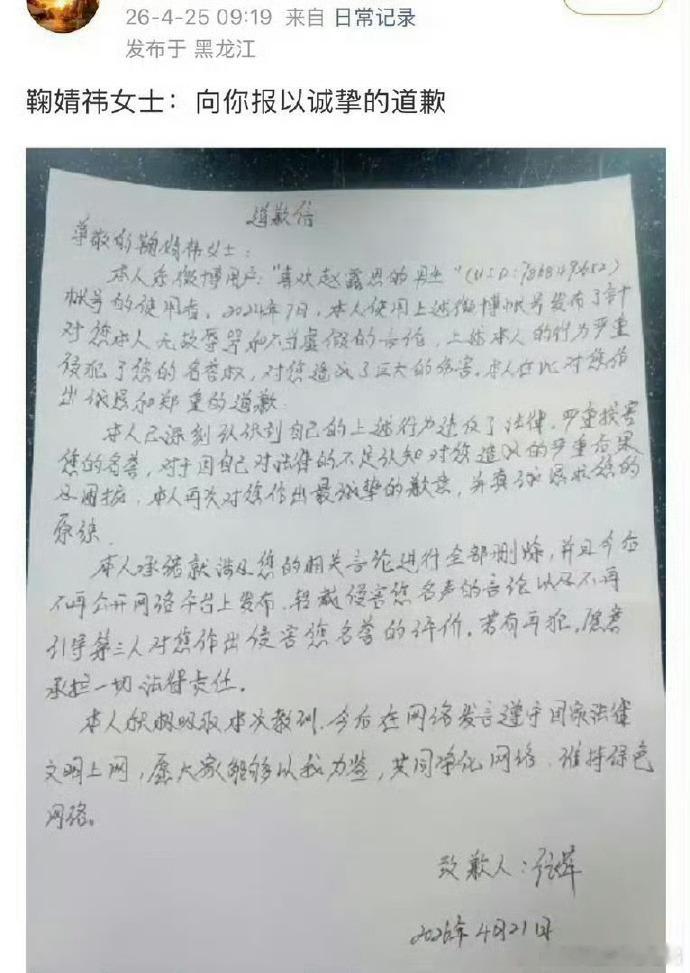 26-4-25 09:19 来自 日常记录
发布于 黑龙江
鞠婧祎女士：向你报以诚挚的道歉
道歉信
尊敬的鞠婧祎女士：
本人系微博用户："喜欢赵露思的男生"(UID:7868849652)
帐号的使用者，2024年7月，本人使用上述微博帐号发布了针
对您本人无故辱骂和不当虚假的言论，上述本人的行为严重
侵犯了您的名誉权，对您造成了巨大的伤害。本人在此对您作
出诚恳和郑重的道歉
本人已深刻认识到自己的上述行为违反了法律，严重损害
您的名誉，对于因自己对法律的不足认知对您造成的严重后果
及困扰，本人再次对您作出最诚挚的歉意，并真诚恳求您的
原谅
本人承诺就涉及您的相关言论进行全部删除，并且今后
不再公开网络平台上发布、转载侵害您名声的言论以及不再
引导第三人对您作出侵害您名誉的评价。若有再犯，愿意
承担一切法律责任。
本人积极吸取本次教训，今后在网络发言遵守国家法律
文明上网，愿大家能够以我为鉴，共同净化网络，维持绿色
网络。
致歉人：
2026年4月21日